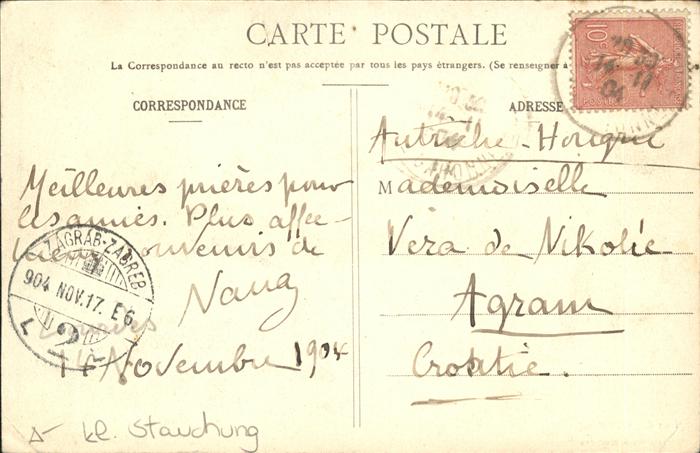 CARTE POSTALE
La Correspondance au recto n'est pas acceptée par tous les pays étrangers. (Se renseigner à
CORRESPONDANCE
Meilleures prières pour
les amies. Plus affec-
souvenirs de
14 Novembre 1904
ZAGRAB-ZAGREB
904 NOV.17. E6
2
ADRESSE
Autriche-Hongrie
Mademoiselle
Véra de Nikolić
Agram
Croatie.
10c
POSTES
kl. Stauchung